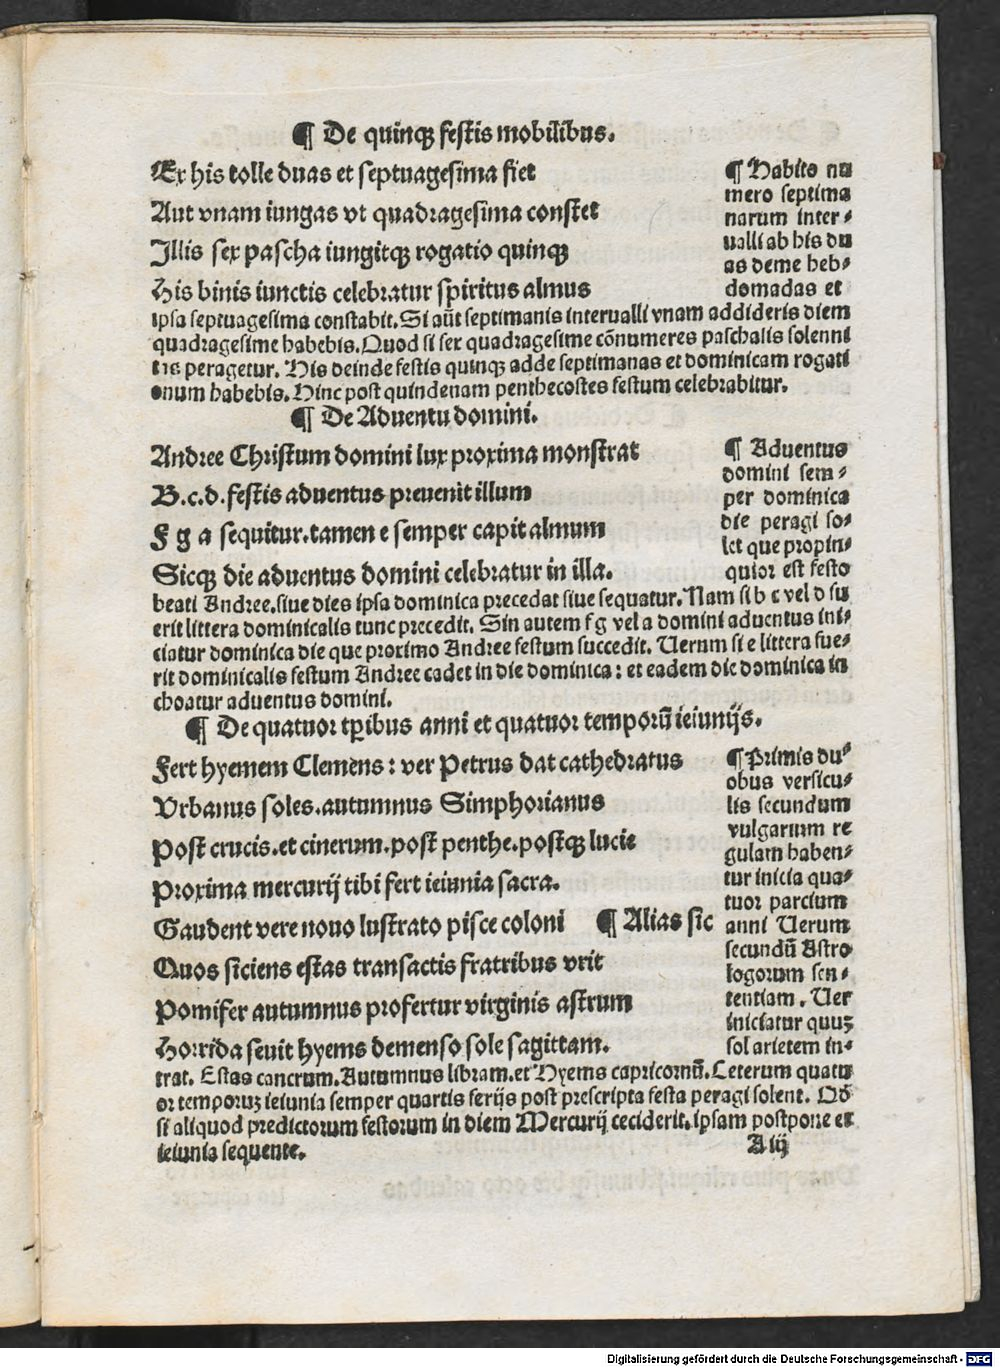 ¶ De quinqꝫ festis mobilibus.
Ex his tolle duas et septuagesima fiet
Aut vnam iungas vt quadragesima constet
Illis sex pascha iungitqꝫ rogatio quinqꝫ
His binis iunctis celebratur spiritus almus
¶ Habito nu
mero septima
narum inter⸗
ualli ab his du
as deme heb⸗
domadas et
ipsa septuagesima constabit. Si aūt septimanis interualli vnam addideris diem
quadragesime habebis. Quod si sex quadragesime cōnumeres paschalis solenni
tas peragetur. His deinde festis quinqꝫ adde septimanas et dominicam rogati
onum habebis. Hinc post quindenam penthecostes festum celebrabitur.
¶ De Aduentu domini.
Andree Christum domini lux proxima monstrat
B.c.d. festis aduentus preuenit illum
F g a sequitur. tamen e semper capit almum
Sicqꝫ die aduentus domini celebratur in illa.
¶ Aduentus
domini sem⸗
per dominica
die peragi so⸗
let que propin⸗
quior est festo
beati Andree. siue dies ipsa dominica precedat siue sequatur. Nam si b c vel d fu
erit littera dominicalis tunc precedit. Sin autem f g vel a domini aduentus ini⸗
ciatur dominica die que proximo Andree festum succedit. Uerum si e littera fue⸗
rit dominicalis festum Andree cadet in die dominica: et eadem die dominica in
choatur aduentus domini.
¶ De quatuor tꝑibus anni et quatuor temporū ieiunijs.
Fert hyemem Clemens: ver Petrus dat cathedratus
Vrbanus soles. autumnus Simphorianus
Post crucis. et cinerum. post penthe. postqꝫ lucie
Proxima mercurij tibi fert ieiunia sacra.
Gaudent vere nouo lustrato pisce coloni ¶ Alias sic
Quos siciens estas transactis fratribus vrit
Pomifer autumnus profertur virginis astrum
Horrida seuit hyems demenso sole sagittam.
¶ Primis du⸗
obus versicu⸗
lis secundum
vulgarium re
gulam haben⸗
tur inicia qua⸗
tuor parcium
anni Uerum
secundū Astro
logorum sen⸗
tentiam. Uer
iniciatur quuꝫ
sol arietem in⸗
trat. Estas cancrum. Autumnus libram. et Hyems capricornū. Ceterum quatu
or temporuꝫ ieiunia semper quartis ferijs post prescripta festa peragi solent. Qd̄
si aliquod predictorum festorum in diem Mercurij ceciderit. ipsam postpone et
ieiunia sequente.
A iij
Digitalisierung gefördert durch die Deutsche Forschungsgemeinschaft - DFG